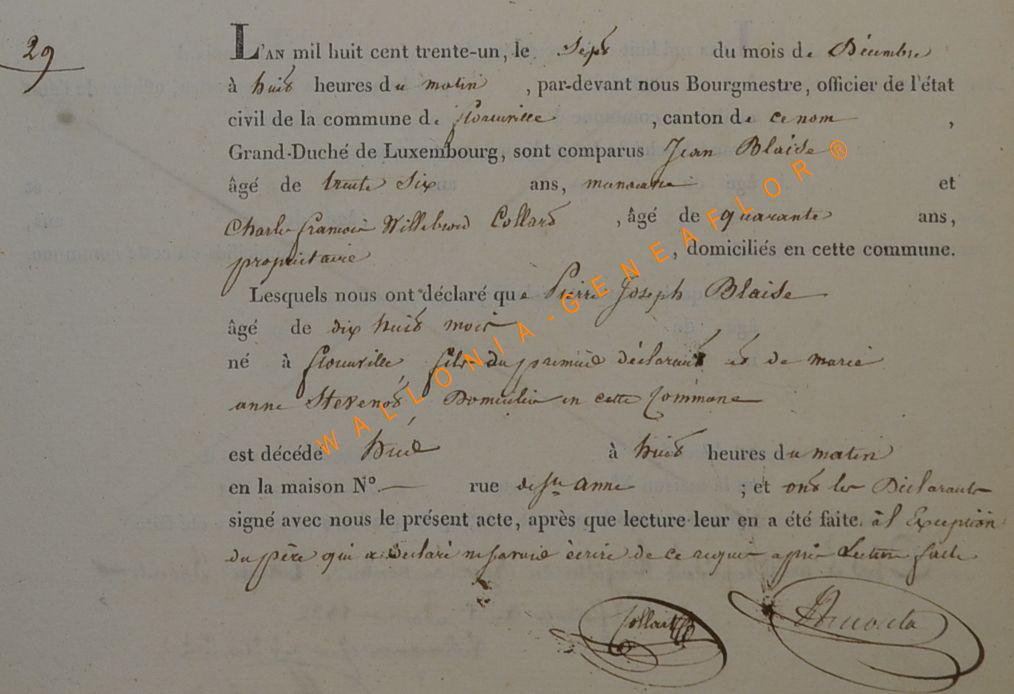 29
L'AN mil huit cent trente-un, le Sept du mois de Décembre
à huit heures du matin , par-devant nous Bourgmestre, officier de l'état
civil de la commune de florenville , canton de ce nom ,
Grand-Duché de Luxembourg, sont comparus Jean Blaise
âgé de trente Six ans, manœuvre et
Charle françois Willebrord Collard , âgé de quarante ans,
propriétaire , domiciliés en cette commune.
Lesquels nous ont déclaré que Pierre Joseph Blaise
âgé de dix huit mois
né à florenville fils du premier déclarant et de marie
anne Stevenot Domiciliée en cette Commune
est décédé hier à huit heures du matin
en la maison N°. — rue de Ste anne ; et ont les Déclarants
signé avec nous le présent acte, après que lecture leur en a été faite. à l'Exception
du père qui a déclaré ne savoir écrire de ce requis après Lecture faite
Collard
WALLONIA-GENEAFLOR®